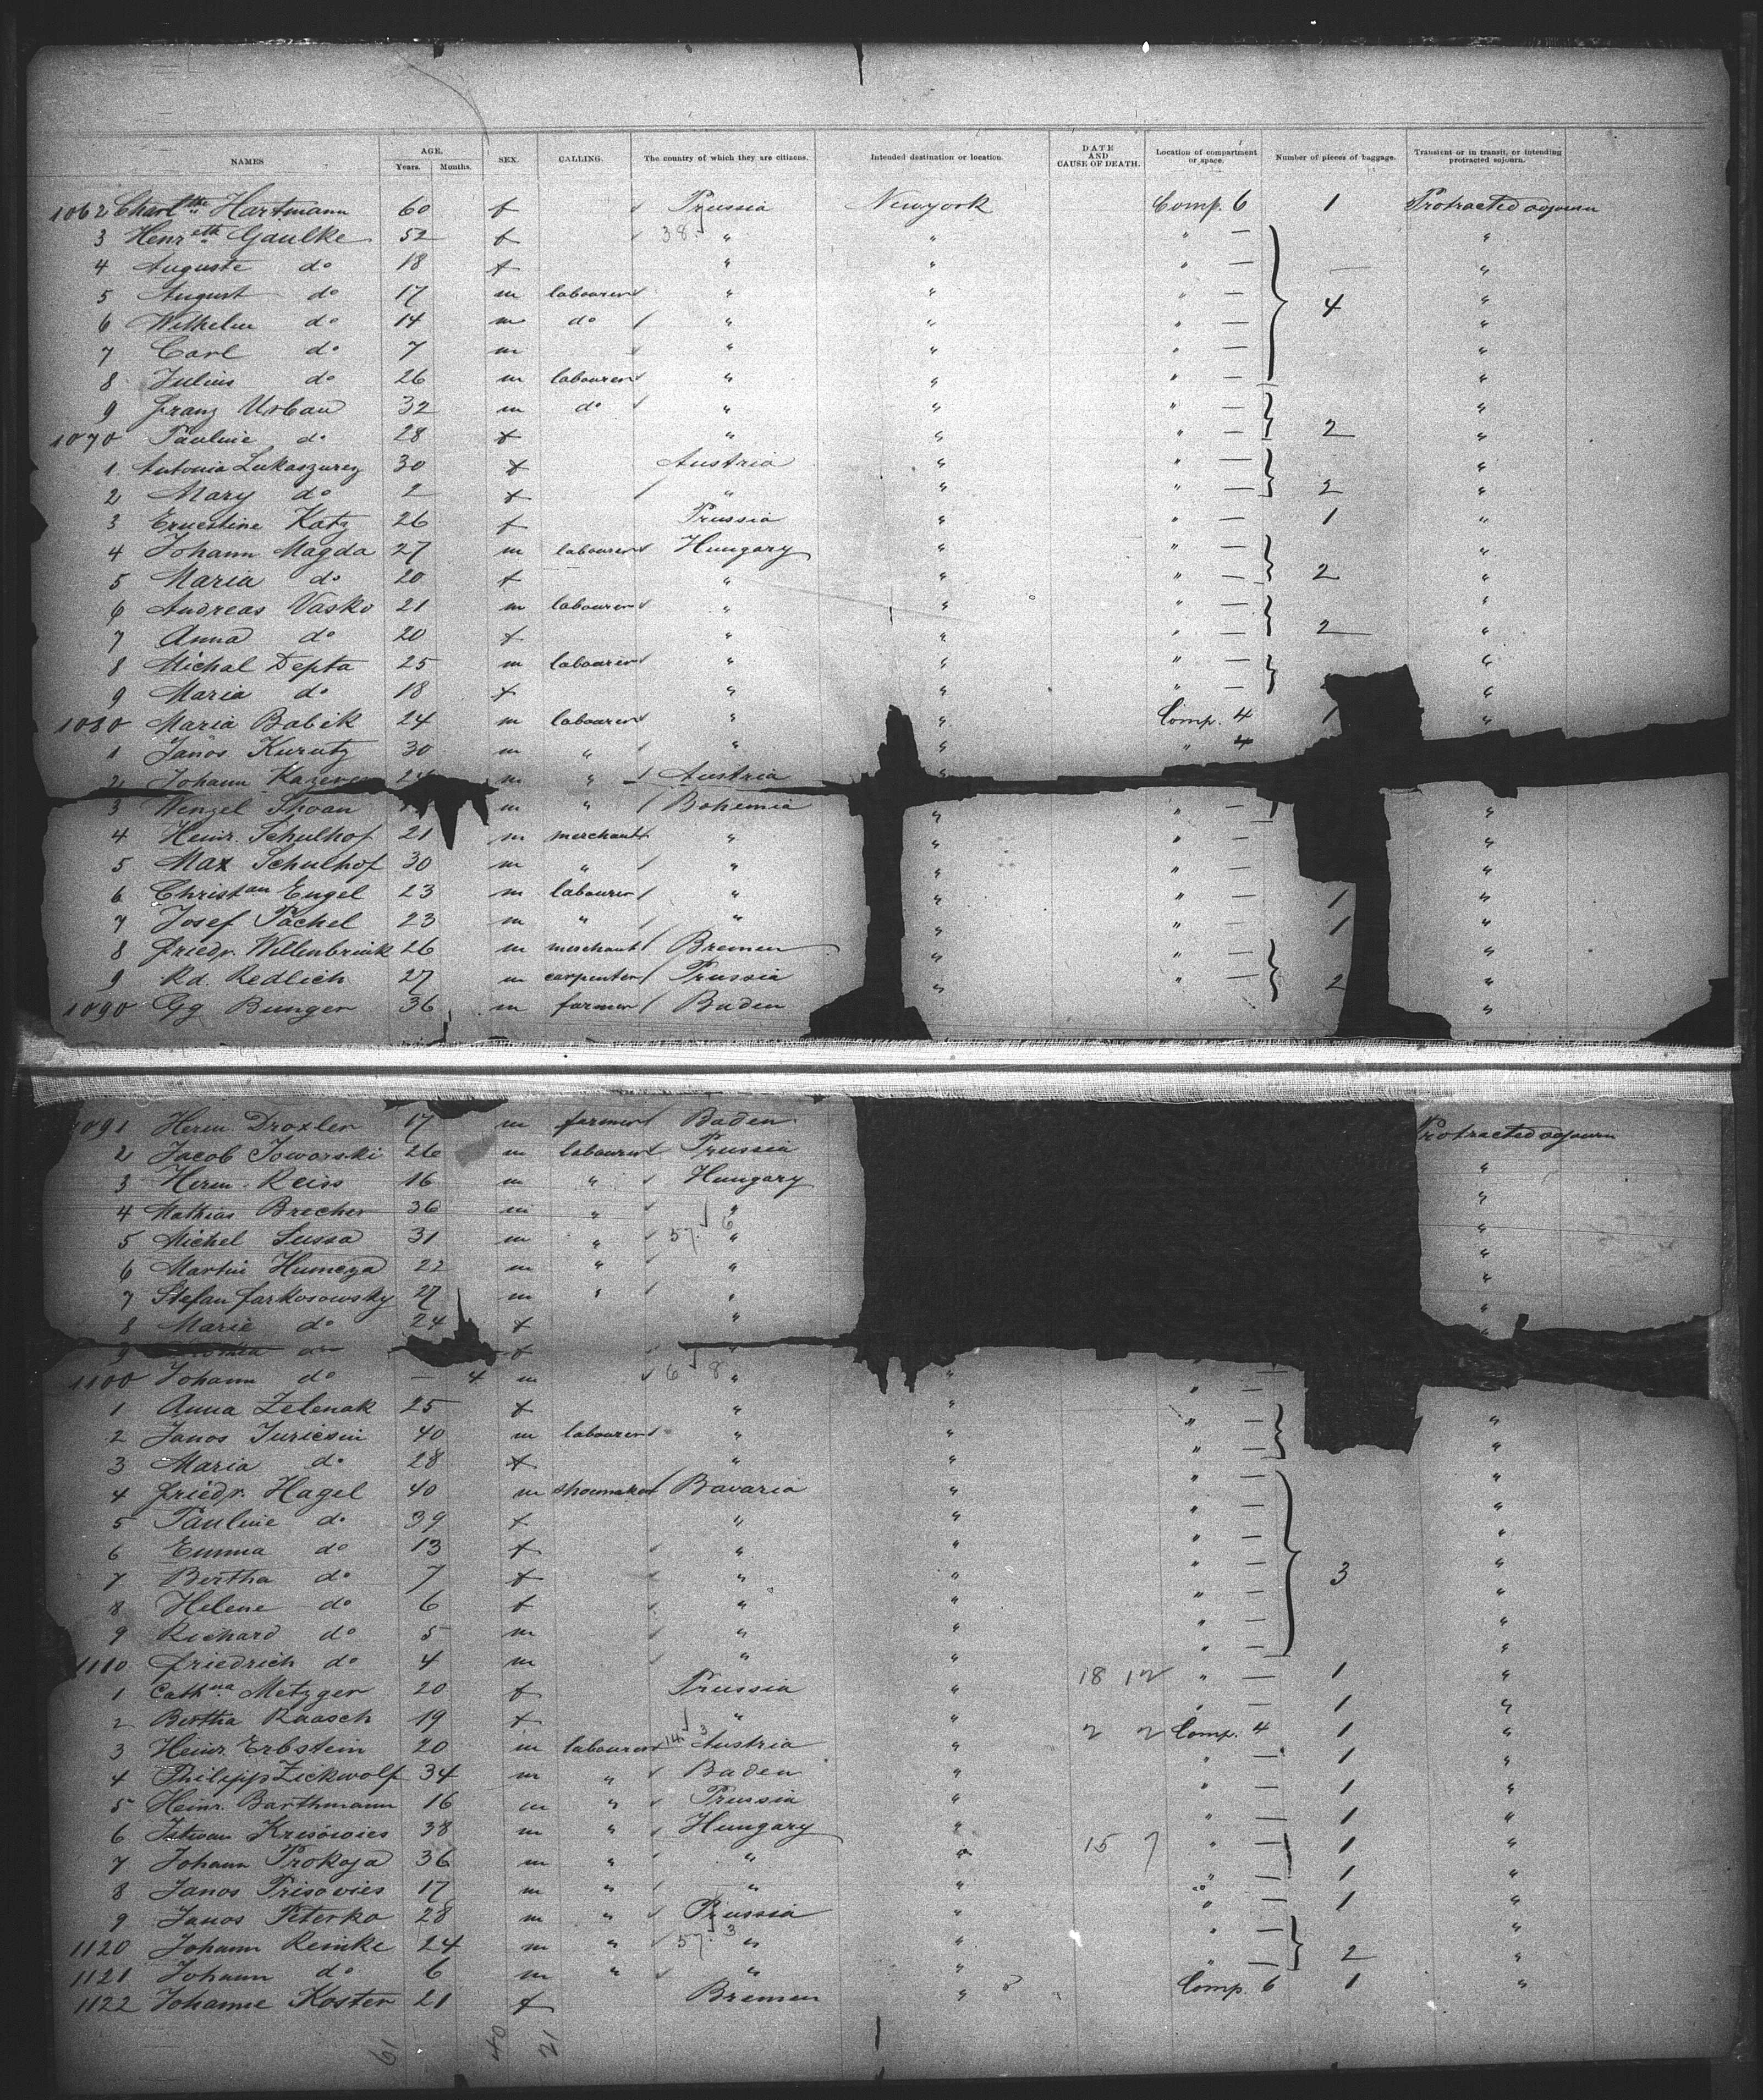 NAMES AGE. Years. Months. SEX. CALLING. The country of which they are citizens. Intended destination or location. DATE AND CAUSE OF DEATH. Location of compartment or space. Number of pieces of baggage. Transient or in transit, or intending protracted sojourn.
1062 Charltte Hartmann 60 f Prussia Newyork Comp. 6 1 Protracted sojourn
3 Henreth Gaulke 52 f 38 " " " — "
4 Auguste do 18 f " " " — "
5 August do 17 m labourer " " " — 4 "
6 Wilhelm do 14 m do " " " — "
7 Carl do 7 m " " " — "
8 Julius do 26 m labourer " " " — "
9 Franz Urban 32 m do " " " — "
1070 Pauline do 28 f " " " — 2 "
1 Antonia 30 f Austria " " — "
2 Mary do 2 f " " " — 2 "
3 Ernestine Katz 26 f Prussia " " — 1 "
4 Johann Magda 27 m labourer Hungary " " — "
5 Maria do 20 f " " " — 2 "
6 Andreas Vasko 21 m labourer " " " — "
7 Anna do 20 f " " " — 2 "
8 Michal Depta 25 m labourer " " " — "
9 Maria do 18 f " " " — "
1080 Maria Babik 24 m labourer " " Comp. 4 1 "
1 Janos Kurutz 30 m " " " " 4
2 Johann m " Austria "
3 Wenzel m " Bohemia " " — "
4 Heinr. Schulhof 21 m merchant " " " — "
5 Max Schulhof 30 m " " " " — "
6 Christian Engel 23 m labourer " " " — 1 "
7 Josef Pachel 23 m " " " " — 1 "
8 Friedr. Willenbrink 26 m merchant Bremen " " — "
9 Rd. Redlich 27 m carpenter Prussia " " — 2 "
1090 Gg Bunger 36 m farmer Baden "
1091 Herm. Droxler 17 m farmer Baden Protracted sojourn
2 Jacob Joworski 26 m labourer Prussia "
3 Herm. Reiss 16 m " Hungary "
4 Mathias Brecher 36 m " " "
5 Michel Sussa 31 m " 57. 6 " "
6 Martin Humeza 22 m " " "
7 Stefan Farkosowsky 27 m " " "
8 Marie do 24 f " "
9 do f "
1100 Johann do — 4 m 6 8 " " —
1 Anna Zelenak 25 f " " " — "
2 Janos 40 m labourer " " " — "
3 Maria do 28 f " " " — "
4 Friedr. Hagel 40 m shoemaker Bavaria " " — "
5 Pauline do 39 f " " " — "
6 Emma do 13 f " " " — "
7 Bertha do 7 f " " " — 3 "
8 Helene do 6 f " " " — "
9 Richard do 5 m " " " — "
1110 Friedrich do 4 m " " " — "
1 Cathna Metzger 20 f Prussia " 18 12 " — 1 "
2 Bertha Raasch 19 f " " " — 1 "
3 Heinr. Erbstein 20 m labourer 14. 3 Austria " 2 2 Comp. 4 1 "
4 Philipp Zickwolf 34 m " Baden " " — 1 "
5 Heinr. Barthmann 16 m " Prussia " " — 1 "
6 Istvan 38 m " Hungary " " — 1 "
7 Johann Prokoja 36 m " " " 15 7 " — 1 "
8 Janos Prisovics 17 m " " " " — 1 "
9 Janos Peterko 28 m " Prussia " " — 1 "
1120 Johann Reinke 24 m " 57. 3 " " " — "
1121 Johann do 6 m " " " " — 2 "
1122 Johanne Koster 21 f Bremen " Comp. 6 1 "
61 40 21